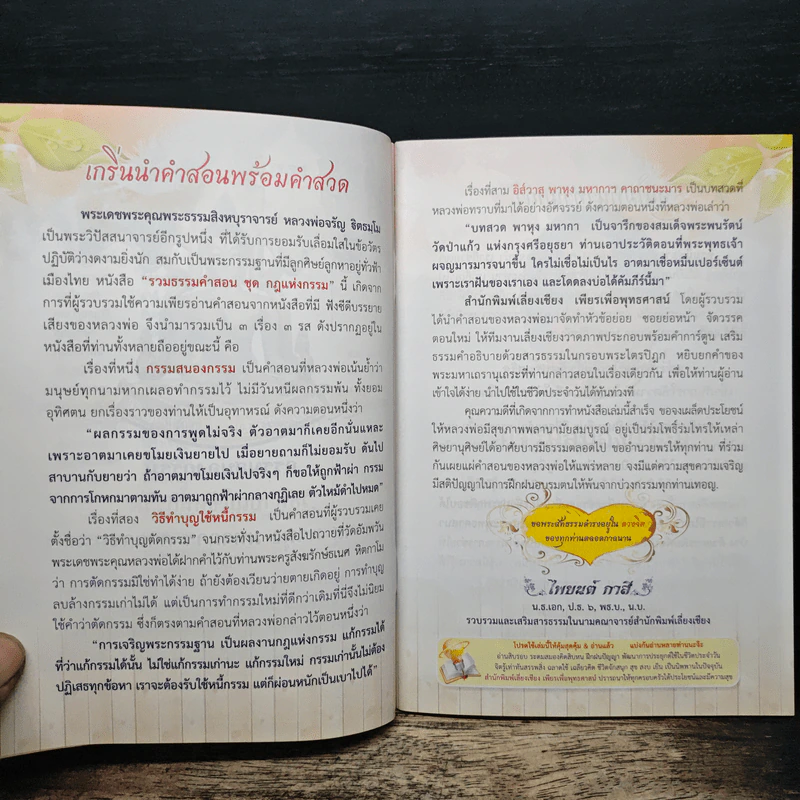 เกริ่นนำคำสอนพร้อมคำสวด
พระเดชพระคุณพระธรรมสิงหบุราจารย์ หลวงพ่อจรัญ ฐิตธมฺโม
เป็นพระวิปัสสนาจารย์อีกรูปหนึ่ง ที่ได้รับการยอมรับเลื่อมใสในข้อวัตร
ปฏิบัติว่างดงามยิ่งนัก สมกับเป็นพระกรรมฐานที่มีลูกศิษย์ลูกหาอยู่ทั่วฟ้า
เมืองไทย หนังสือ “รวมธรรมคำสอน ชุด กฎแห่งกรรม” นี้ เกิดจาก
การที่ผู้รวบรวมใช้ความเพียรอ่านคำสอนจากหนังสือที่มี ฟังซีดีบรรยาย
เสียงของหลวงพ่อ จึงนำมารวมเป็น ๓ เรื่อง ๓ รส ดังปรากฏอยู่ใน
หนังสือที่ท่านทั้งหลายถืออยู่ขณะนี้ คือ
เรื่องที่หนึ่ง กรรมสนองกรรม เป็นคำสอนที่หลวงพ่อเน้นย้ำว่า
มนุษย์ทุกนามหากเผลอทำกรรมไว้ ไม่มีวันหนีผลกรรมพ้น ทั้งยอม
อุทิศตน ยกเรื่องราวของท่านให้เป็นอุทาหรณ์ ดังความตอนหนึ่งว่า
“ผลกรรมของการพูดไม่จริง ตัวอาตมาก็เคยอีกนั่นแหละ
เพราะอาตมาเคยขโมยเงินยายไป เมื่อยายถามก็ไม่ยอมรับ ดันไป
สาบานกับยายว่า ถ้าอาตมาขโมยเงินไปจริงๆ ก็ขอให้ถูกฟ้าผ่า กรรม
จากการโกหกมาตามทัน อาตมาถูกฟ้าผ่ากลางกุฏิเลย ตัวไหม้ดำไปหมด”
เรื่องที่สอง วิธีทำบุญใช้หนี้กรรม เป็นคำสอนที่ผู้รวบรวมเคย
ตั้งชื่อว่า “วิธีทำบุญตัดกรรม” จนกระทั่งนำหนังสือไปถวายที่วัดอัมพวัน
พระเดชพระคุณหลวงพ่อได้ฝากคำไว้กับท่านพระครูสังฆรักษ์ธเนศ หิตกาโม
ว่า การตัดกรรมมิใช่ทำได้ง่าย ถ้ายังต้องเวียนว่ายตายเกิดอยู่ การทำบุญ
ลบล้างกรรมเก่าไม่ได้ แต่เป็นการทำกรรมใหม่ที่ดีกว่าเดิมที่นี่จึงไม่นิยม
ใช้คำว่าตัดกรรม ซึ่งก็ตรงตามคำสอนที่หลวงพ่อกล่าวไว้ตอนหนึ่งว่า
“การเจริญพระกรรมฐาน เป็นผลงานกฎแห่งกรรม แก้กรรมได้
ที่ว่าแก้กรรมได้นั้น ไม่ใช่แก้กรรมเก่านะ แก้กรรมใหม่ กรรมเก่านั้นไม่ต้อง
ปฏิเสธทุกข้อหา เราจะต้องใช้หนี้กรรม แต่ก็ผ่อนหนักเป็นเบาไปได้”
เรื่องที่สาม อิสฺวาสุ พาหุง มหากาฯ คาถาชนะมาร เป็นบทสวดที่
หลวงพ่อทราบที่มาได้อย่างอัศจรรย์ ดังความตอนหนึ่งที่หลวงพ่อเล่าว่า
“บทสวด พาหุง มหากา เป็นจารึกของสมเด็จพระพนรัตน์
วัดป่าแก้ว แห่งกรุงศรีอยุธยา ท่านเอาประวัติตอนที่พระพุทธเจ้า
ผจญมารมารจนาขึ้น ใครไม่เชื่อไม่เป็นไร อาตมาเชื่อหมื่นเปอร์เซ็นต์
เพราะเราฝันของเราเอง และโดดลงบ่อได้คัมภีร์นี้มา”
สำนักพิมพ์เลี่ยงเชียง เพียรเพื่อพุทธศาสน์ โดยผู้รวบรวม
ได้นำคำสอนของหลวงพ่อมาจัดทำหัวข้อย่อย ซอยย่อหน้า จัดวรรค
ตอนใหม่ ให้ทีมงานเลี่ยงเชียงวาดภาพประกอบพร้อมคำการ์ตูน เสริม
ธรรมคำอธิบายด้วยสารธรรมในกรอบพระไตรปิฎก หยิบยกคำของ
พระมหาเถรานุเถระที่ท่านกล่าวสอนในเรื่องเดียวกัน เพื่อให้ผู้อ่าน
เข้าใจได้ง่าย นำไปใช้ในชีวิตประจำวันได้ทันท่วงที
คุณความดีที่เกิดจากการทำหนังสือเล่มนี้สำเร็จ ขอจงเผล็ดประโยชน์
ให้หลวงพ่อมีสุขภาพพลานามัยสมบูรณ์ อยู่เป็นร่มโพธิ์ร่มไทรให้เหล่า
ศิษยานุศิษย์ได้อาศัยบารมีธรรมตลอดไป ขออำนวยพรให้ทุกท่าน ที่ร่วม
กันเผยแผ่คำสอนของหลวงพ่อให้แพร่หลาย จงมีแต่ความสุขความเจริญ
มีสติปัญญาในการฝึกฝนอบรมตนให้พ้นจากบ่วงกรรมทุกท่านเทอญ.
ขอพระสัทธรรมดำรงอยู่ใน ดวงจิต
ของทุกท่านตลอดกาลนาน
ไพยนต์ กาสี
น.ธ.เอก, ป.ธ. ๖, พธ.บ., น.บ.
รวบรวมและเสริมสารธรรมในนามคณาจารย์สำนักพิมพ์เลี่ยงเชียง
โปรดใช้เล่มนี้ให้คุ้มสุดคุ้ม & อ่านแล้ว แบ่งกันอ่านหลายท่านแจ๋ง
สำนักพิมพ์เลี่ยงเชียง เพียรเพื่อพุทธศาสน์ ปรารถนาให้ทุกครอบครัวได้ประโยชน์และมีความสุข